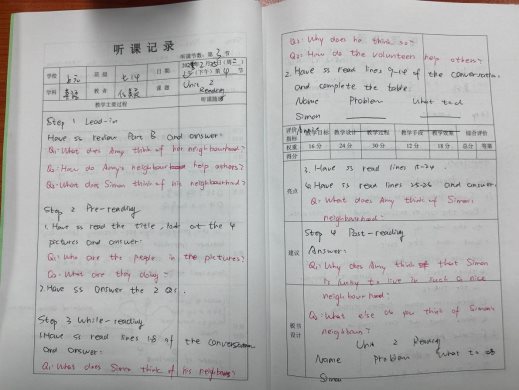 听课记录
听课节数：第 3 节
学校 班级 七14 日期
学科 英语 教者 课题 Unit 2 Reading
教学主要过程 听课随感
Step 1 Lead-in
Have ss review Part B and answer:
Q1: What does Amy think of her neighbourhood?
Q2: How do Amy's neighbour help others?
Q3: What does Simon think of his neighbourhood?
Step 2 Pre-reading
1. Have ss read the title, look at the 4
pictures and answer:
Q1: Who are the people in the pictures?
Q2: What are they doing?
2. Have ss answer the 2 Qs.
Step 3 While-reading
1. Have ss read lines 1-8 of the conversation
and answer:
Q1: What does Simon think of his neighbours?
Q2: Why does he think so?
Q3: How do the volunteers help others?
2. Have ss read lines 9-14 of the conversation
and complete the table:
Name Problem What to do
Simon
评价指标 教学目标 教学设计 教学过程 教学手段 教学效果 综合评价
权重 16分 24分 30分 12分 18分 总分 等第
得分
3. Have ss read lines 15-24.
亮点
4. Have ss read lines 25-26 and answer:
Q: What does Amy think of Simon's
neighbourhood?
Step 4 Post-reading
建议
Answer:
Q1: Why does Amy think that Simon
is lucky to live in such a nice
neighbourhood?
Q2: What else do you think of Simon's
neighbours?
板书设计
Unit 2 Reading
Name Problem What to do
Simon